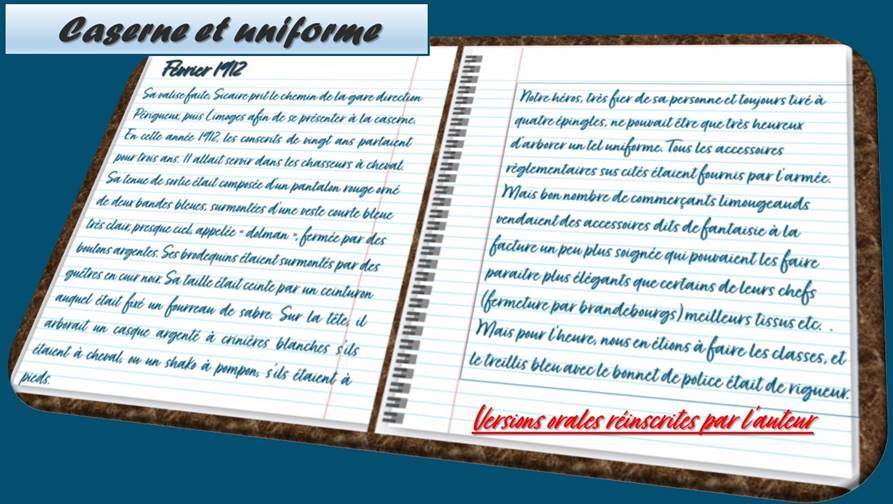 Caserne et uniforme
Février 1912
Sa valise faite, Sicaire prit le chemin de la gare direction
Périgueux, puis Limoges afin de se présenter à la caserne.
En cette année 1912, les conscrits de vingt ans partaient
pour trois ans. Il allait servir dans les chasseurs à cheval.
Sa tenue de sortie était composée d'un pantalon rouge orné
de deux bandes bleues, surmontées d'une veste courte bleue
très clair, presque ciel, appelée " dolman ", fermée par des
boutons argentés. Ses brodequins étaient surmontés par des
guêtres en cuir noir. Sa taille était ceinte par un ceinturon
auquel était fixé un fourreau de sabre. Sur la tête, il
arborait un casque argenté à crinières blanches s'ils
étaient à cheval, ou un shako à pompon, s'ils étaient à
pieds.
Notre héros, très fier de sa personne et toujours tiré à
quatre épingles, ne pouvait être que très heureux
d'arborer un tel uniforme. Tous les accessoires
règlementaires sus cités étaient fournis par l'armée.
Mais bon nombre de commerçants limougeauds
vendaient des accessoires dits de fantaisie à la
facture un peu plus soignée qui pouvaient les faire
paraitre plus élégants que certains de leurs chefs
(fermeture par brandebourgs) meilleurs tissus etc. . .
Mais pour l'heure, nous en étions à faire les classes, et
le treillis bleu avec le bonnet de police était de rigueur.
Versions orales réinscrites par l'auteur